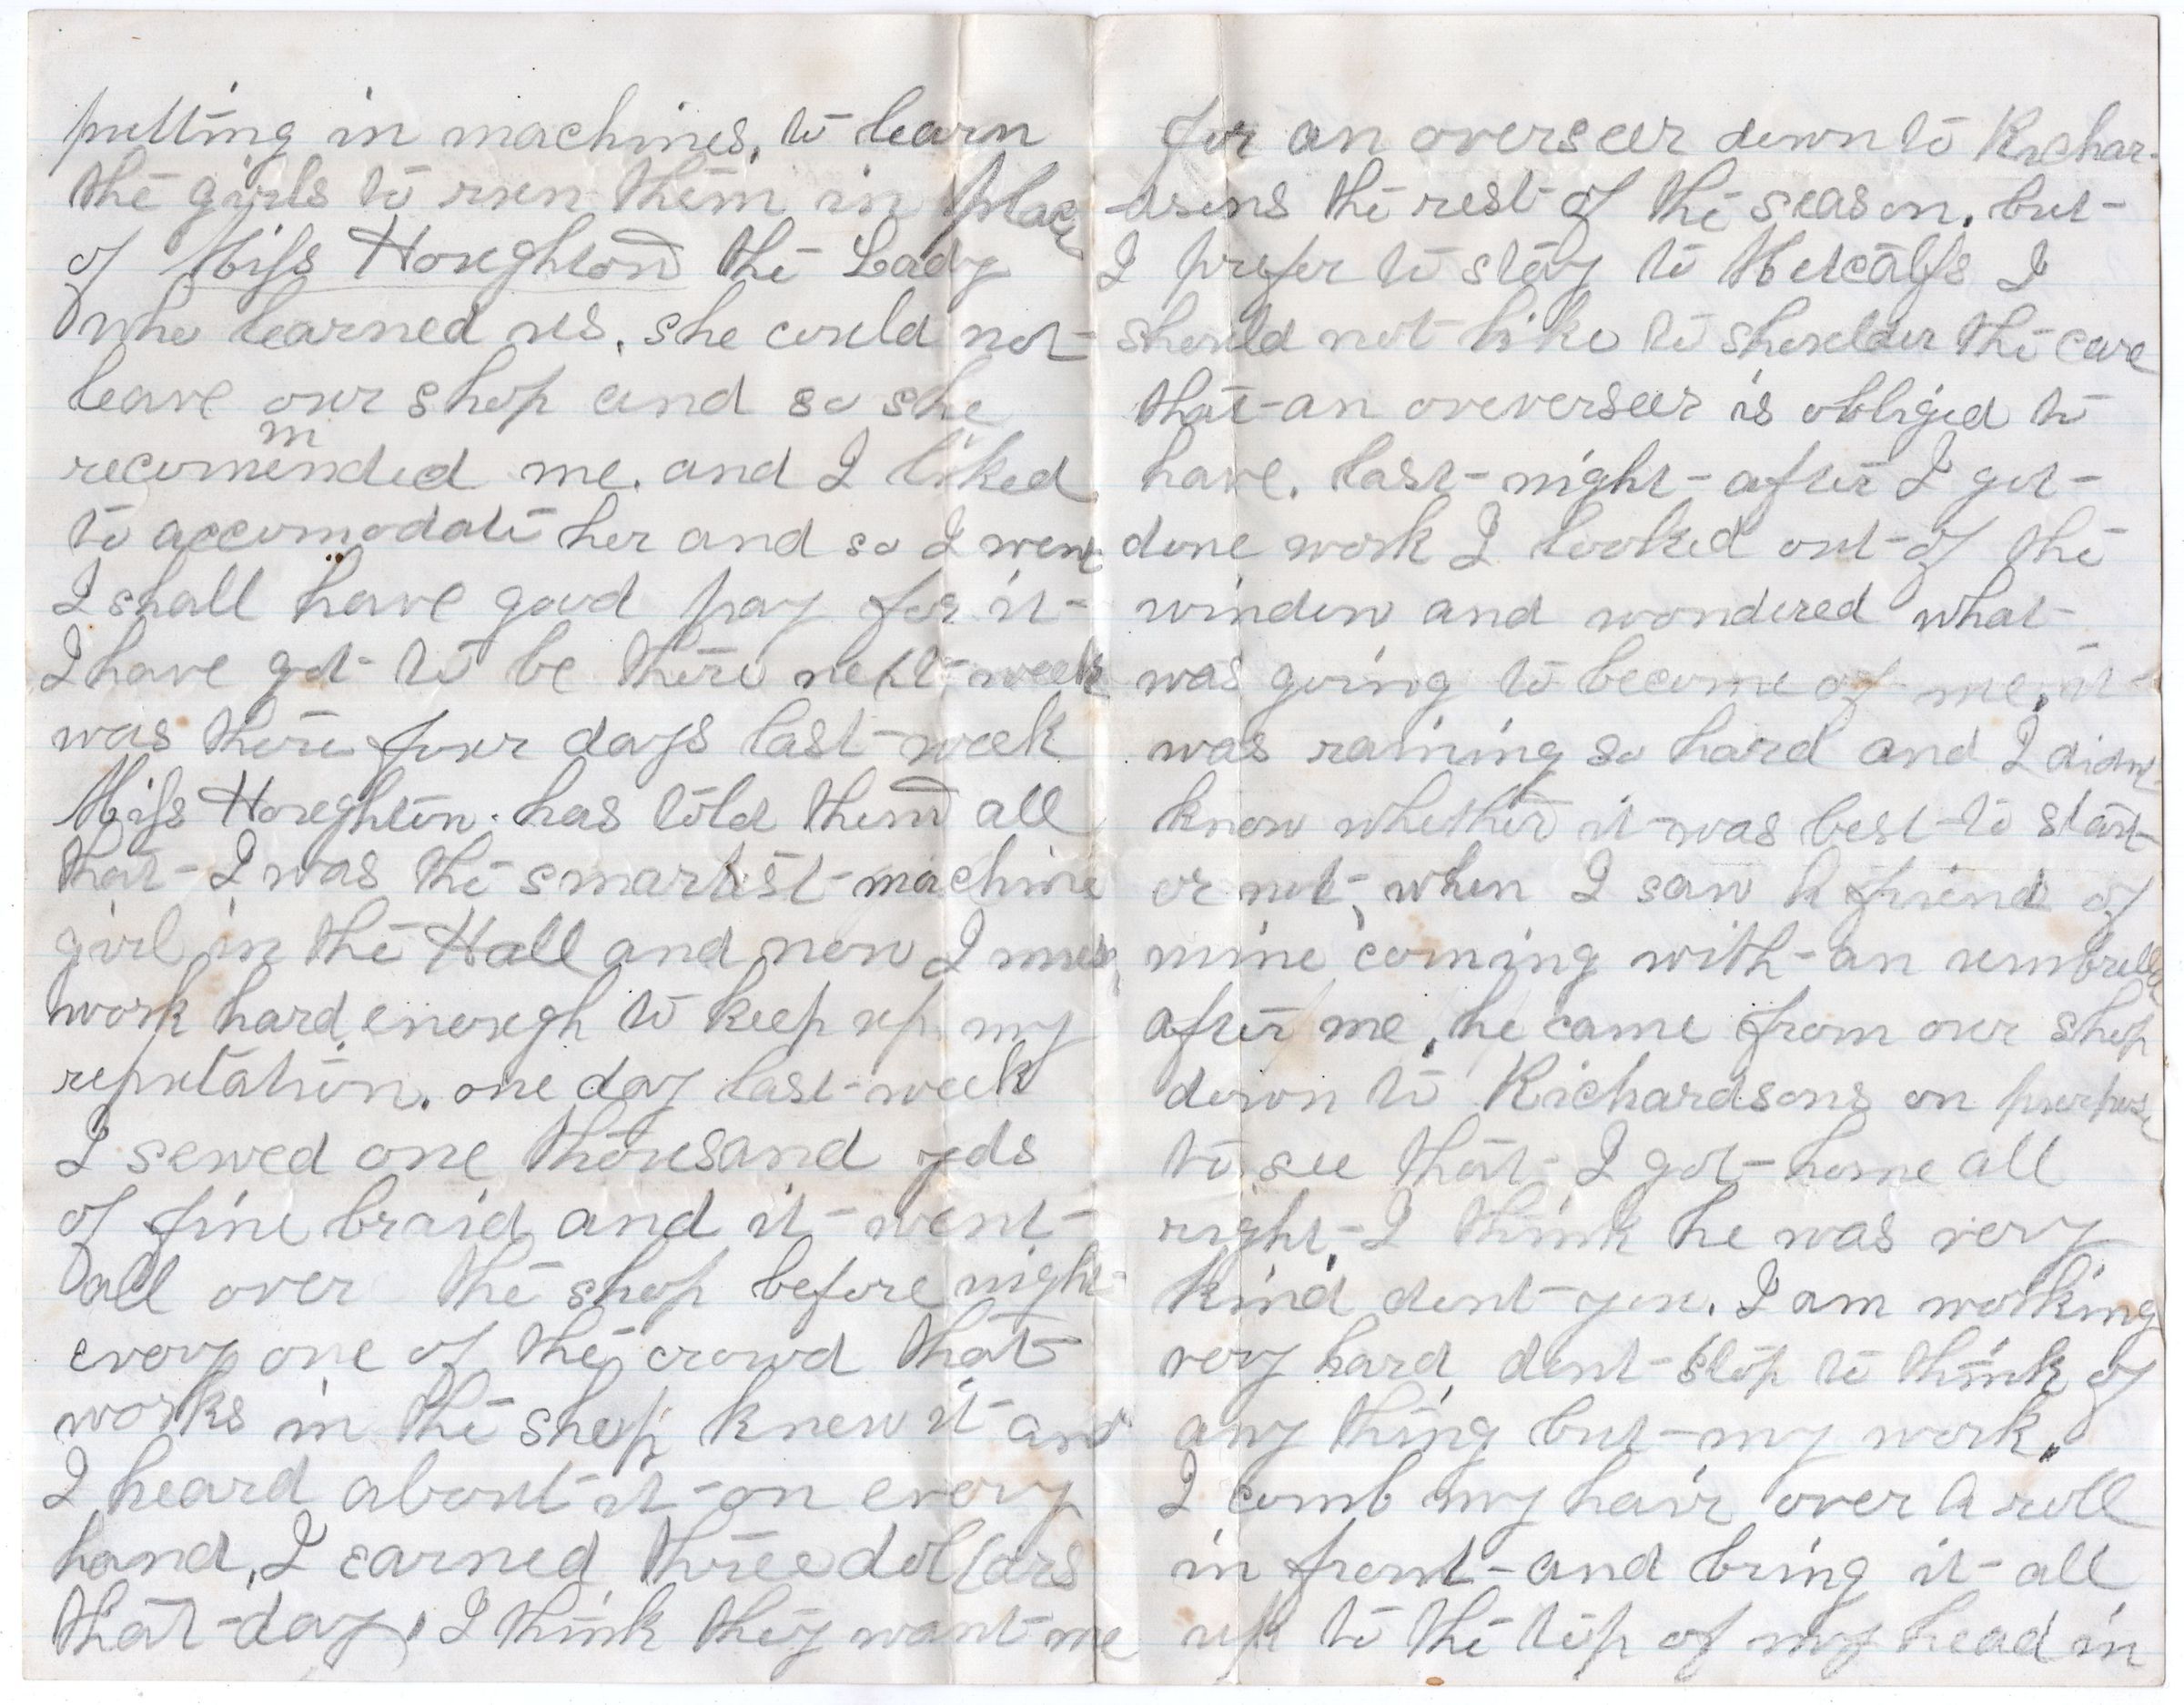 putting in machines, to learn
the girls to run them in place
of Miss Houghton the Lady
who learned us. she could not
leave our shop and so she
m
recomended me. and I liked
to accomodate her and so I went
I shall have good pay for it
I have got to be there next week
was there four days last week
Miss Houghton. has told them all
that I was the smartest machine
girl in the Hall and now I must
work hard enough to keep up my
reputation. one day last week
I sewed one thousand yds
of fine braid and it went
all over the shop before night
every one of the crowd that
works in the shop knew it and
I heard about it on every
hand, I earned three dollars
that day, I think they want me
for an overseer down to Richar-
dsons the rest of the season. but
I prefer to stay to Metcalfs I
should not like to shoulder the care
that an oververseer is obliged to
have. last night after I got
done work I looked out of the
window and wondered what
was going to become of me, it
was raining so hard and I didnt
know whether it was best to start
or not, when I saw a friend of
mine coming with an umbrella
after me, he came from our shop
down to Richardsons on purpose
to see that I got home all
right, I think he was very
kind dont you. I am working
very hard dont stop to think of
any thing but my work.
I comb my hair over a roll
in front and bring it all
up to the top of my head in